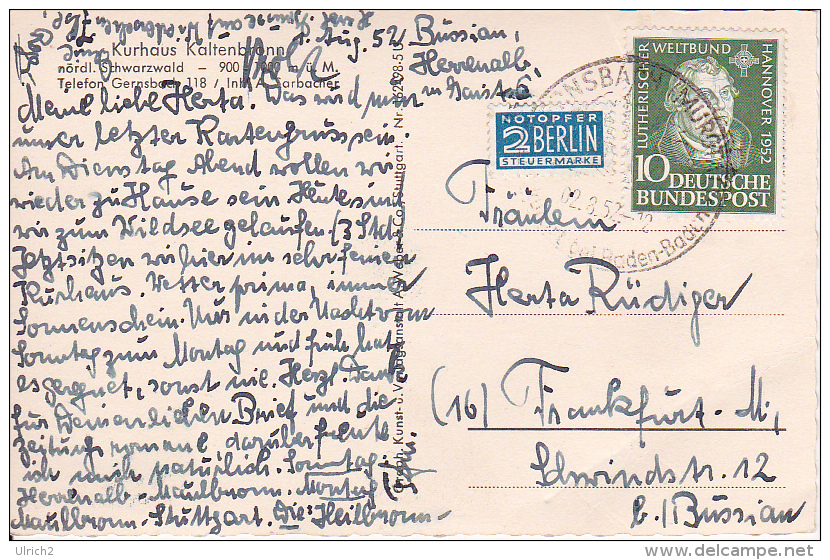 Kurhaus Kaltenbronn
nördl. Schwarzwald - 900 / 1000 m ü. M.
Telefon Gernsbach 118 / Inh. A. Sarbacher
Aug. 52
Büssian,
Herrenalb,
Meine liebe Herta. Das wird nun
unser letzter Kartengruss sein.
Am Dienstag Abend wollen wir
wieder zu Hause sein. Heute sind
wir zum Wildsee gelaufen (3 Std.
Jetzt sitzen wir hier im sehr feinen
Kurhaus. Wetter prima, immer
Sonnenschein. Nur in der Nacht vom
Sonntag zum Montag und früh hat
es geregnet, sonst nie. Herzl. Dank
für Deinen lieben Brief und die
Zeitungs darüber freute
ich mich natürlich. Sonntag:
Herrenalb - Maulbronn. Montag
Maulbronn - Stuttgart. Die: Heilbronn -
Graph. Kunst- u. Verlagsanstalt A. Weber & Co., Stuttgart. Nr.
NOTOPFER
2 BERLIN
STEUERMARKE
LUTHERISCHER WELTBUND HANNOVER 1952
10 DEUTSCHE
BUNDESPOST
GERNSBACH (MURGTAL)
bei Baden-Baden
Fräulein
Herta Rüdiger
(16) Frankfurt - M,
Schwindstr. 12
b./Büssian
Ulrich2
www.delcampe.net